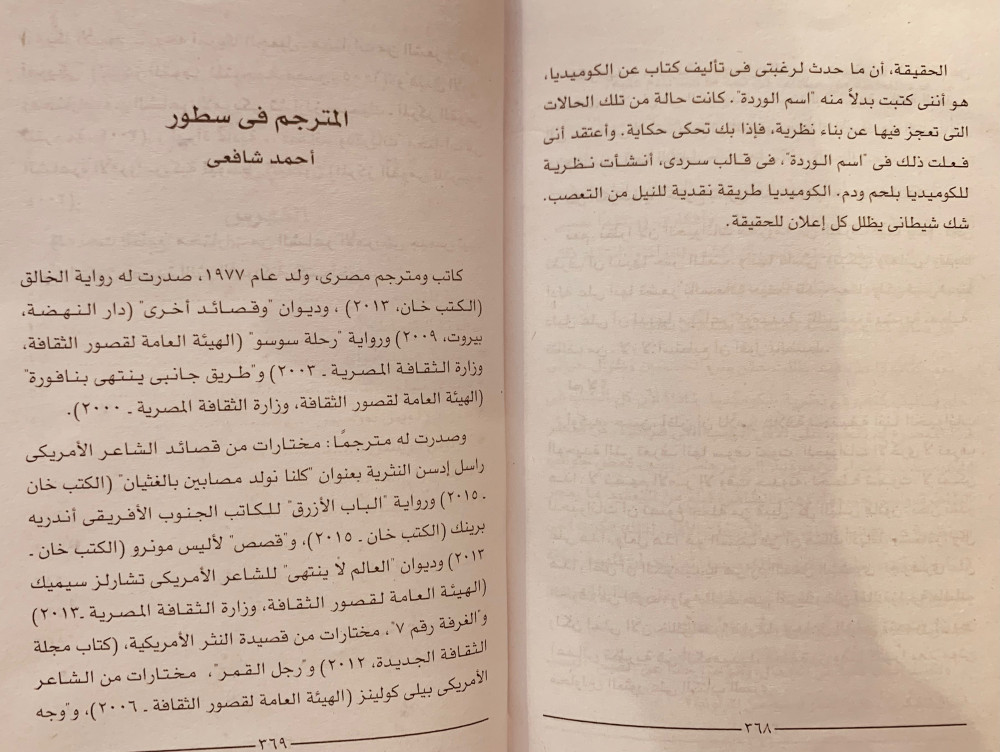 الحقيقة، أن ما حدث لرغبتى فى تأليف كتاب عن الكوميديا،
هو أننى كتبت بدلاً منه "اسم الوردة". كانت حالة من تلك الحالات
التى تعجز فيها عن بناء نظرية، فإذا بك تحكى حكاية. وأعتقد أنى
فعلت ذلك فى "اسم الوردة"، فى قالب سردى، أنشأت نظرية
للكوميديا بلحم ودم. الكوميديا طريقة نقدية للنيل من التعصب.
شك شيطانى يظلل كل إعلان للحقيقة.
٣٦٨
المترجم فى سطور
أحمد شافعى
كاتب ومترجم مصرى، ولد عام ١٩٧٧، صدرت له رواية الخالق
(الكتب خان، ٢٠١٣) ، وديوان "وقصائد أخرى" (دار النهضة،
بيروت، ٢٠٠٩) ورواية "رحلة سوسو" (الهيئة العامة لقصور الثقافة،
وزارة الثقافة المصرية ـ ٢٠٠٣) و"طريق جانبى ينتهى بنافورة"
(الهيئة العامة لقصور الثقافة، وزارة الثقافة المصرية ـ ٢٠٠٠).
وصدرت له مترجمًا: مختارات من قصائد الشاعر الأمريكى
راسل إدسن النثرية بعنوان "كلنا نولد مصابين بالغثيان" (الكتب خان
ـ ٢٠١٥) ورواية "الباب الأزرق" للكاتب الجنوب الأفريقى أندريه
برينك (الكتب خان ـ ٢٠١٥)، و"قصص" لأليس مونرو (الكتب خان ـ
٢٠١٣) وديوان "العالم لا ينتهى" للشاعر الأمريكى تشارلز سيميك
(الهيئة العامة لقصور الثقافة، وزارة الثقافة المصرية ـ٢٠١٣)
و"الغرفة رقم ٧"، مختارات من قصيدة النثر الأمريكية، (كتاب مجلة
الثقافة الجديدة، ٢٠١٢) و"رجل القمر"، مختارات من الشاعر
الأمريكى بيلى كولينز (الهيئة العامة لقصور الثقافة ـ ٢٠٠٦)، و"وجه
٣٦٩